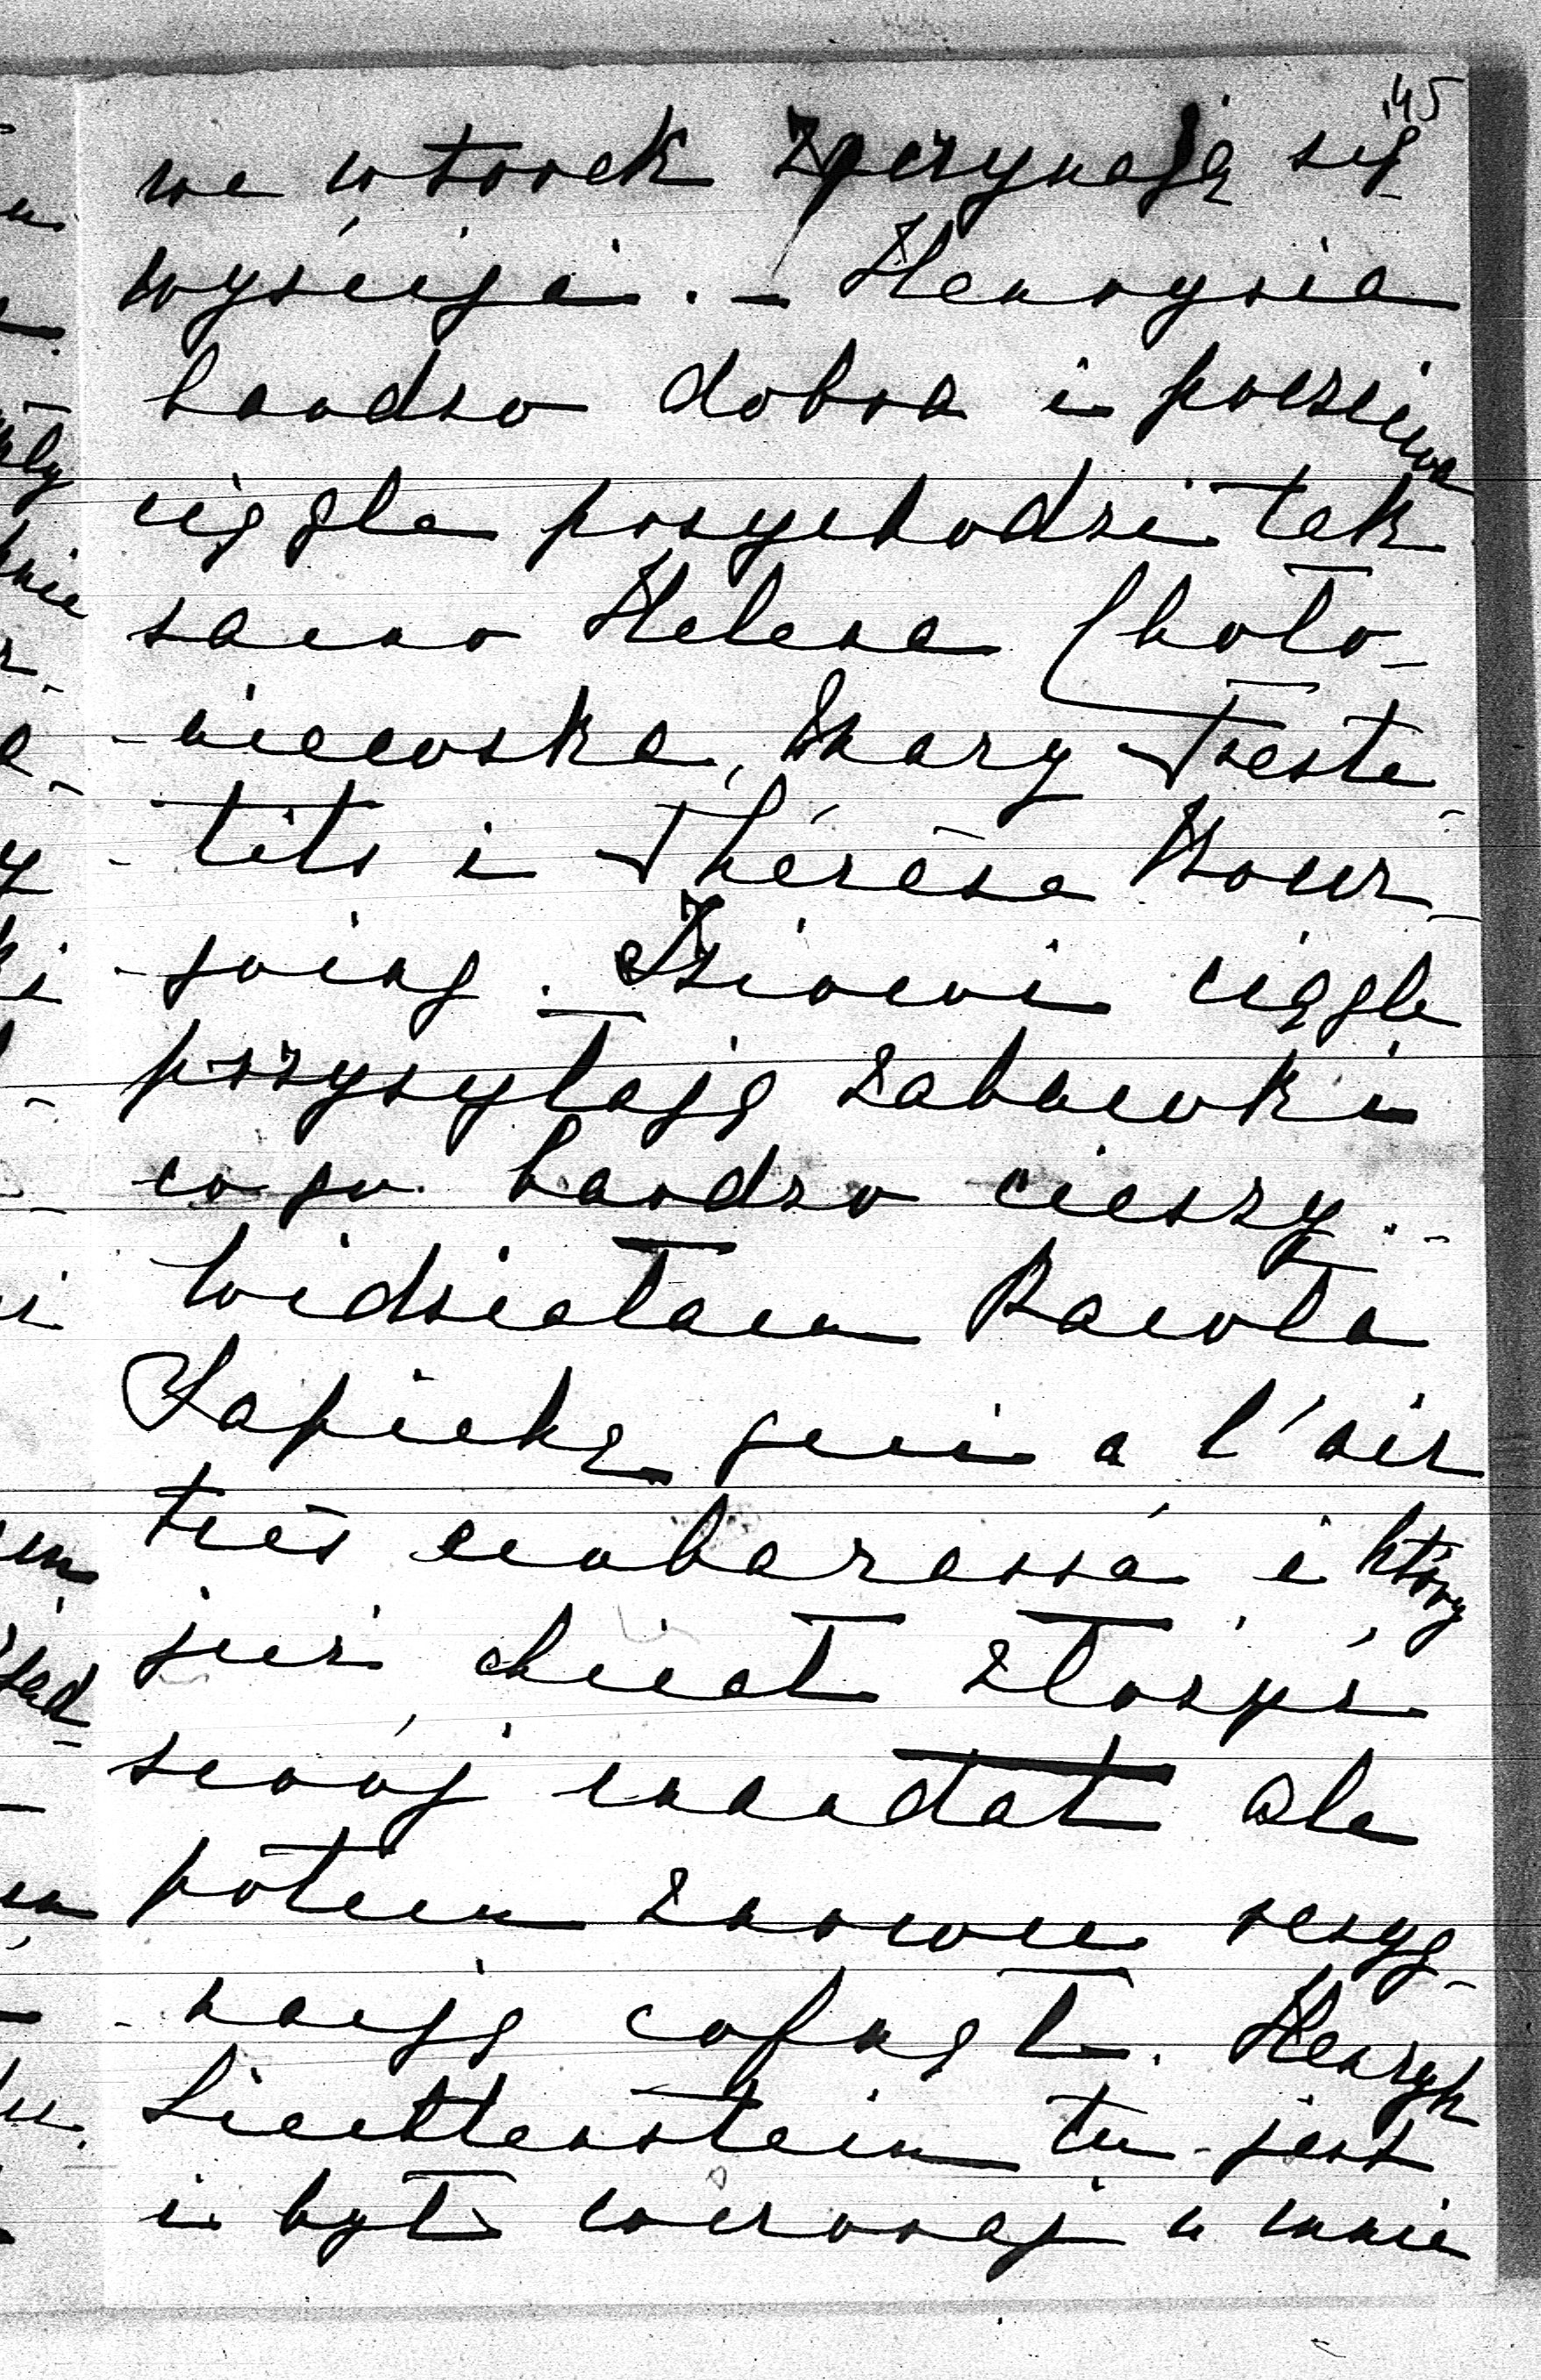 145
we wtorek zaczynają się
wyścigi. – Henrysia
bardzo dobra i poczciwa
ciągle przychodzi tak
samo Helena Choło-
-niewska, Mary Feste-
-tits i Thérèse Bour-
-going. Dziowi ciągle
przysyłają zabawki
co go bardzo cieszy. –
Widziałam Pawła
Sapiehę qui a l'air
très embarassé i który
już chciał złożyć
swój mandat ale
potem znowu rezyg-
-nację cofnął. Henryk
Liechtenstein tu jest
i był wczoraj u mnie